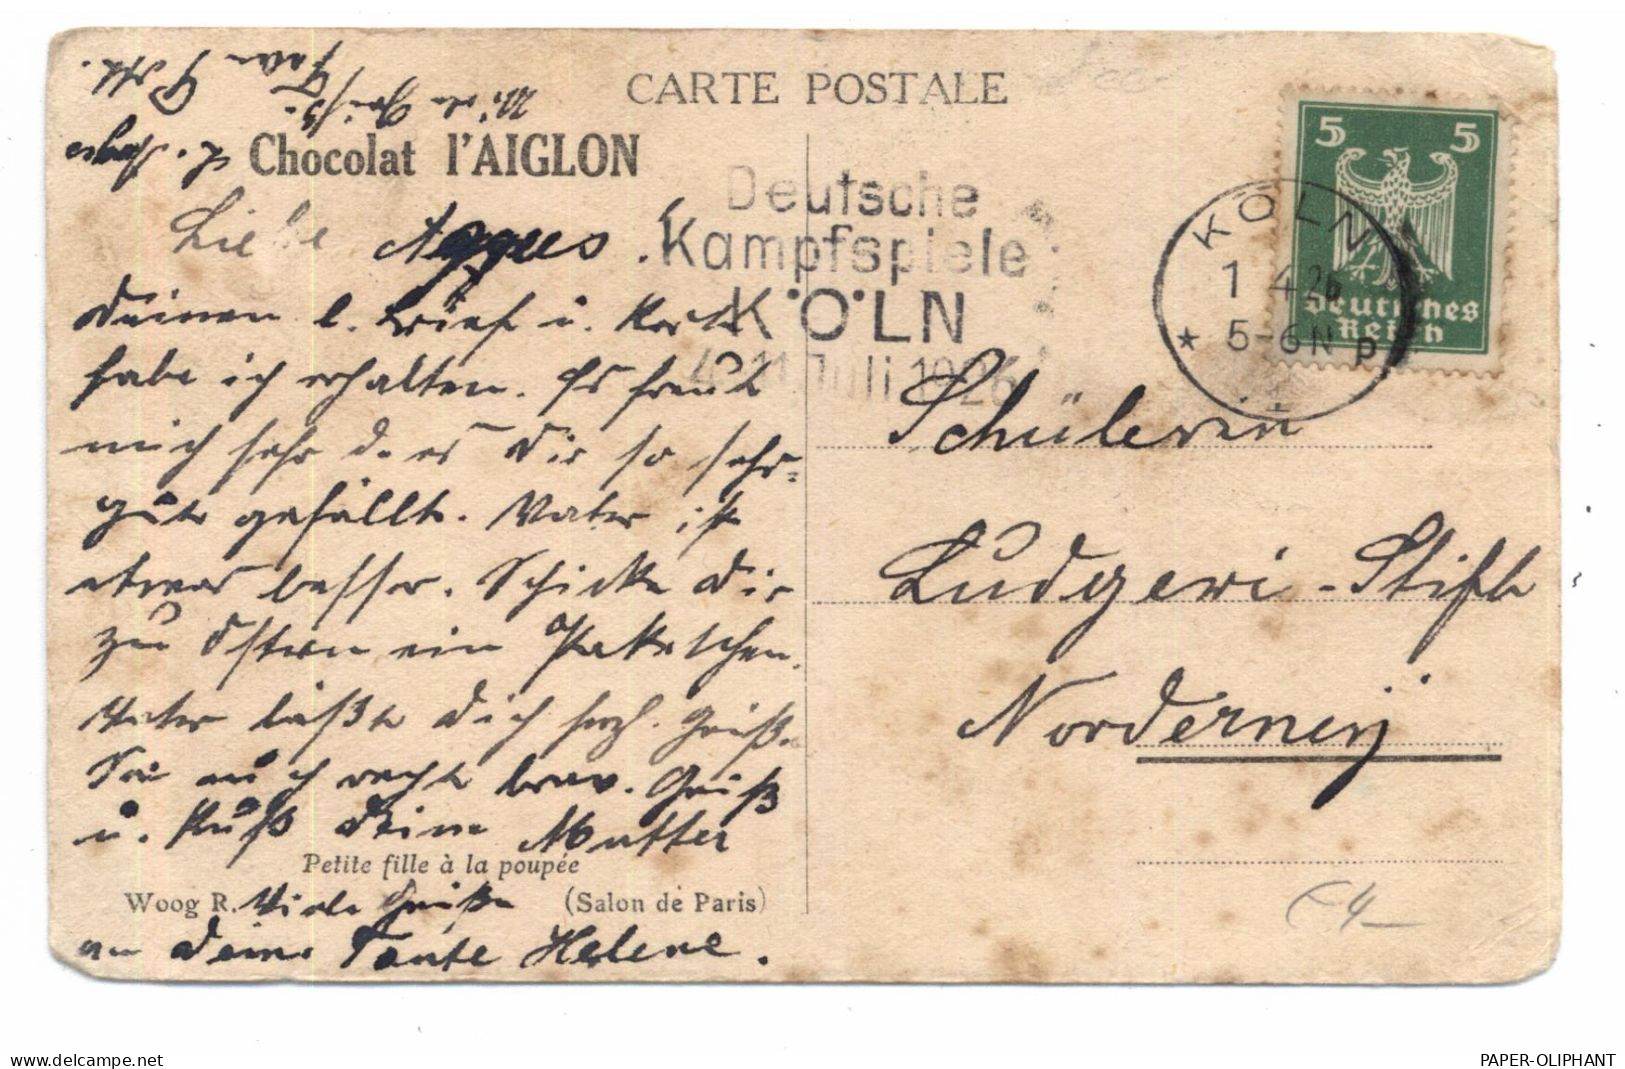 CARTE POSTALE
Chocolat l'AIGLON
Viele Grüße
L. Agnes
Liebe Agnes!
Deinen l. Brief u. Karte
habe ich erhalten. Es freut
mich sehr d. es Dir so sehr
gut gefällt. Vater ist
etwas besser. Schicke Dir
zu Ostern ein Paketchen.
Vater läßt Dich herzl. grüße.
Sei auch recht brav. Gruß
u. Kuß Deine Mutter
Petite fille à la poupée
Woog R. (Salon de Paris)
Viele Grüße
an Deine Tante Helene.
Deutsche
Kampfspiele
KÖLN
4.-11. Juli 1926
5 5
Deutsches
Reich
KÖLN
1 4.26
* 5-6N p
1
Schülerin
Ludgeri-Stift
Norderneÿ
delcampe.net
PAPER-OLIPHANT